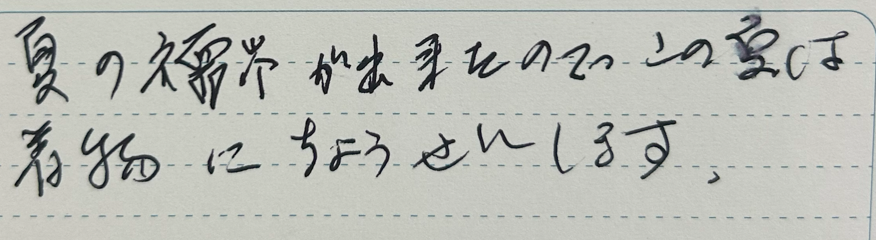 夏の襦袢が出来たので、この夏は
着物にちょうせんします、